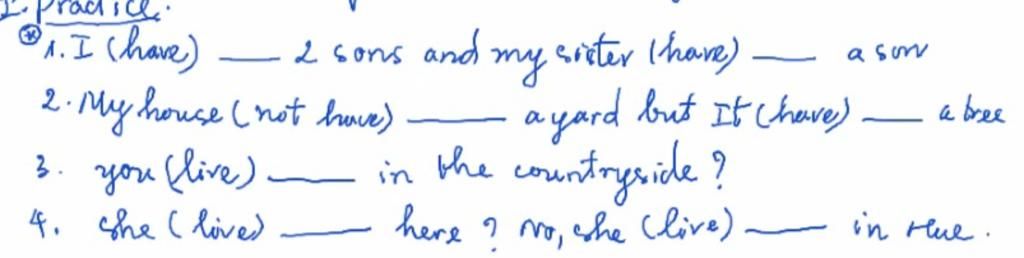 I. Practice.
* 1. I (have) ____ 2 sons and my sister (have) ____ a son
2. My house (not have) ____ a yard but It (have) ____ a tree
3. you (live) ____ in the countryside ?
4. she (live) ____ here ? No, she (live) ____ in Hue.